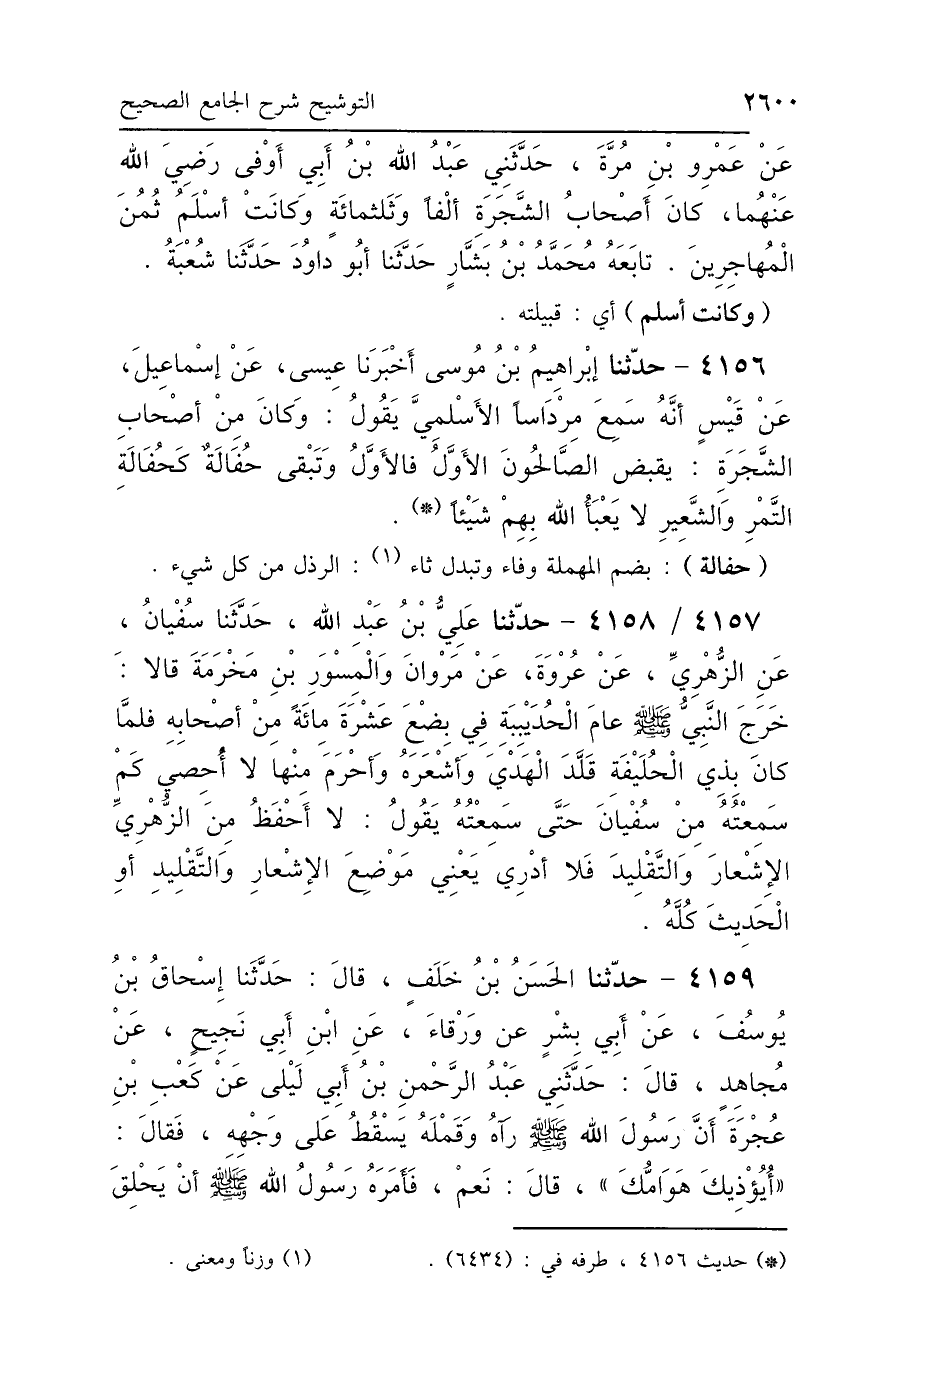 ٢٦٠٠ التوشيح شرح الجامع الصحيح
عَنْ عَمْرِو بْنِ مُرَّةَ ، حَدَّثَنِي عَبْدُ الله بْنُ أَبي أَوْفى رَضِيَ الله
عَنْهُما، كانَ أَصْحابُ الشَّجَرَةِ ألْفاً وَثَلثمائَةٍ وَكانَتْ أسْلَمُ ثُمنَ
الْمُهاجِرِينَ . تابَعَهُ مُحَمَّدُ بْنُ بَشَّارٍ حَدَّثَنا أبُو داودَ حَدَّثَنا شُعْبَةُ .
( وكانت أسلم ) أي : قبيلته .
٤١٥٦ – حدّثنا إبْراهِيمُ بْنُ مُوسى أَخْبَرَنا عِيسى، عَنْ إسْماعِيلَ،
عَنْ قَيْسٍ أنَّهُ سَمِعَ مِرْدَاساً الأَسْلَمِيَّ يَقُولُ : وَكانَ مِنْ أصْحابِ
الشَّجَرَةِ : يقبض الصَّالحُونَ الأَوَّلُ فالأوَّلُ وَتَبْقى حُفَالَةٌ كَحُفَالَةِ
التَّمْرِ وَالشَّعِيرِ لا يَعْبَأُ الله بِهِمْ شَيْئاً (*) .
( حفالة ) : بضم المهملة وفاء وتبدل ثاء (١) : الرذل من كل شيء .
٤١٥٧ / ٤١٥٨ – حدّثنا عَلِيُّ بْنُ عَبْدِ الله ، حَدَّثَنا سُفْيانُ ،
عَنِ الزُّهْرِيِّ ، عَنْ عُرْوَةَ، عَنْ مَرْوانَ وَالْمِسْوَرِ بْنِ مَخْرَمَةَ قالا :
خَرَجَ النَّبِيُّ ﷺ عامَ الْحُدَيْبِيَةِ فِي بِضْعَ عَشْرَةَ مِائَةً مِنْ أصْحابِهِ فلمَّا
كانَ بِذِي الْحُلَيْفَةِ قَلَّدَ الْهَدْيَ وَأشْعَرَهُ وَأحْرَمَ مِنْها لا أُحصِي كَمْ
سَمِعْتُهُ مِنْ سُفْيانَ حَتَّى سَمِعْتُهُ يَقُولُ : لا أَحْفَظُ مِنَ الزُّهْرِيِّ
الإشْعارَ وَالتَّقْلِيدَ فَلا أدْرِي يَعْنِي مَوْضِعَ الإشْعارِ وَالتَّقْلِيدِ أوِ
الْحَدِيثَ كُلَّهُ .
٤١٥٩ – حدّثنا الحَسَنُ بْنُ خَلَفٍ ، قالَ : حَدَّثَنا إسْحاقُ بْنُ
يُوسُفَ ، عَنْ أَبِي بِشْرٍ عن وَرْقاءَ ، عَنِ ابْنِ أَبِي نَجِيحٍ ، عَنْ
مُجاهِدٍ ، قالَ : حَدَّثَنِي عَبْدُ الرَّحْمنِ بْنُ أبِي لَيْلى عَنْ كَعْبِ بْنِ
عُجْرَةَ أنَّ رَسُولَ الله ﷺ رَآهُ وَقَمْلُهُ يَسْقُطُ عَلى وَجْهِهِ ، فَقالَ :
«أَيُؤْذِيكَ هَوَامُّكَ» ، قالَ : نَعمْ ، فَأمَرَهُ رَسُولُ الله ﷺ أنْ يَحْلِقَ
(*) حديث ٤١٥٦ ، طرفه في : (٦٤٣٤) . (١) وزناً ومعنى .